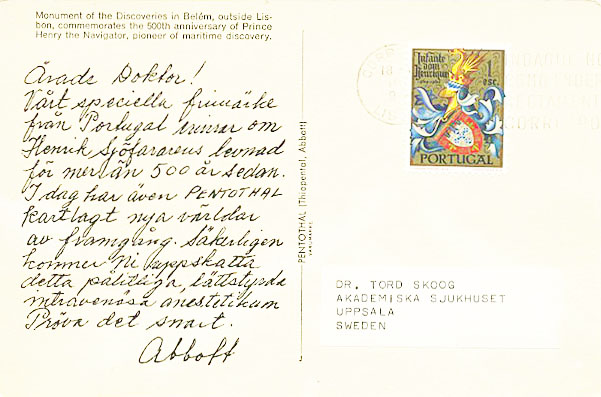 Monument of the Discoveries in Belém, outside Lis-
bon, commemorates the 500th anniversary of Prince
Henry the Navigator, pioneer of maritime discovery.
Ärade Doktor!
Vårt speciella frimärke
från Portugal minner om
Henrik Sjöfararens levnad
för mer än 500 år sedan.
I dag har även PENTOTHAL
kartlagt nya världar
av framgång. Säkerligen
kommer Ni uppskatta
detta pålitliga, lättstyrda
intravenösa anestetikum
Pröva det snart.
Abbott
PENTOTHAL (Thiopental, Abbott)
Infante
dom
Henrique
1
esc.
PORTUGAL
DR. TORD SKOOG
AKADEMISKA SJUKHUSET
UPPSALA
SWEDEN